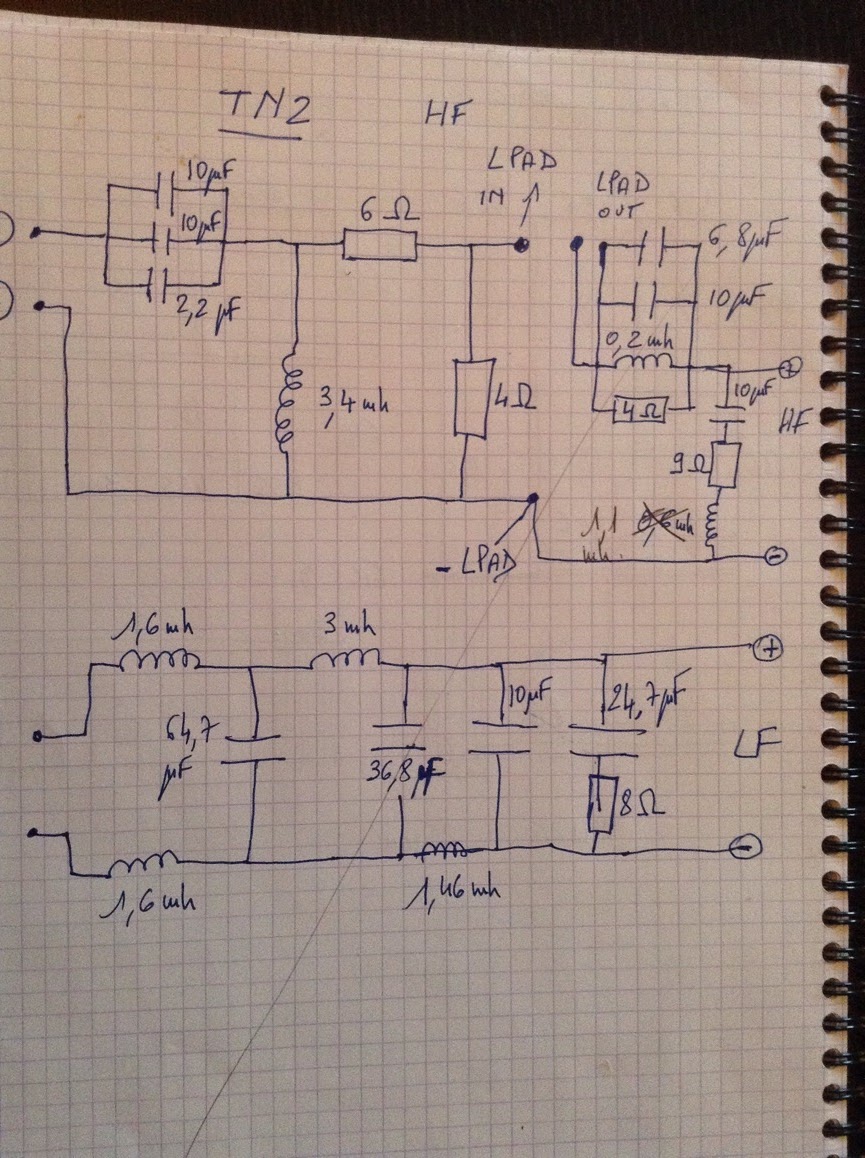 TN2 HF
10µF
10µF
2,2 µF
6 Ω
LPAD
IN
LPAD
OUT
6,8µF
10µF
0,2 mh
4Ω
+
10µF
HF
9Ω
1,1
mh.
-
3,4 mh
4Ω
- LPAD
1,6 mh
3 mh
+
64,7
µF
36,8 µF
10µF
24,7µF
8Ω
LF
-
1,6 mh
1,46mh